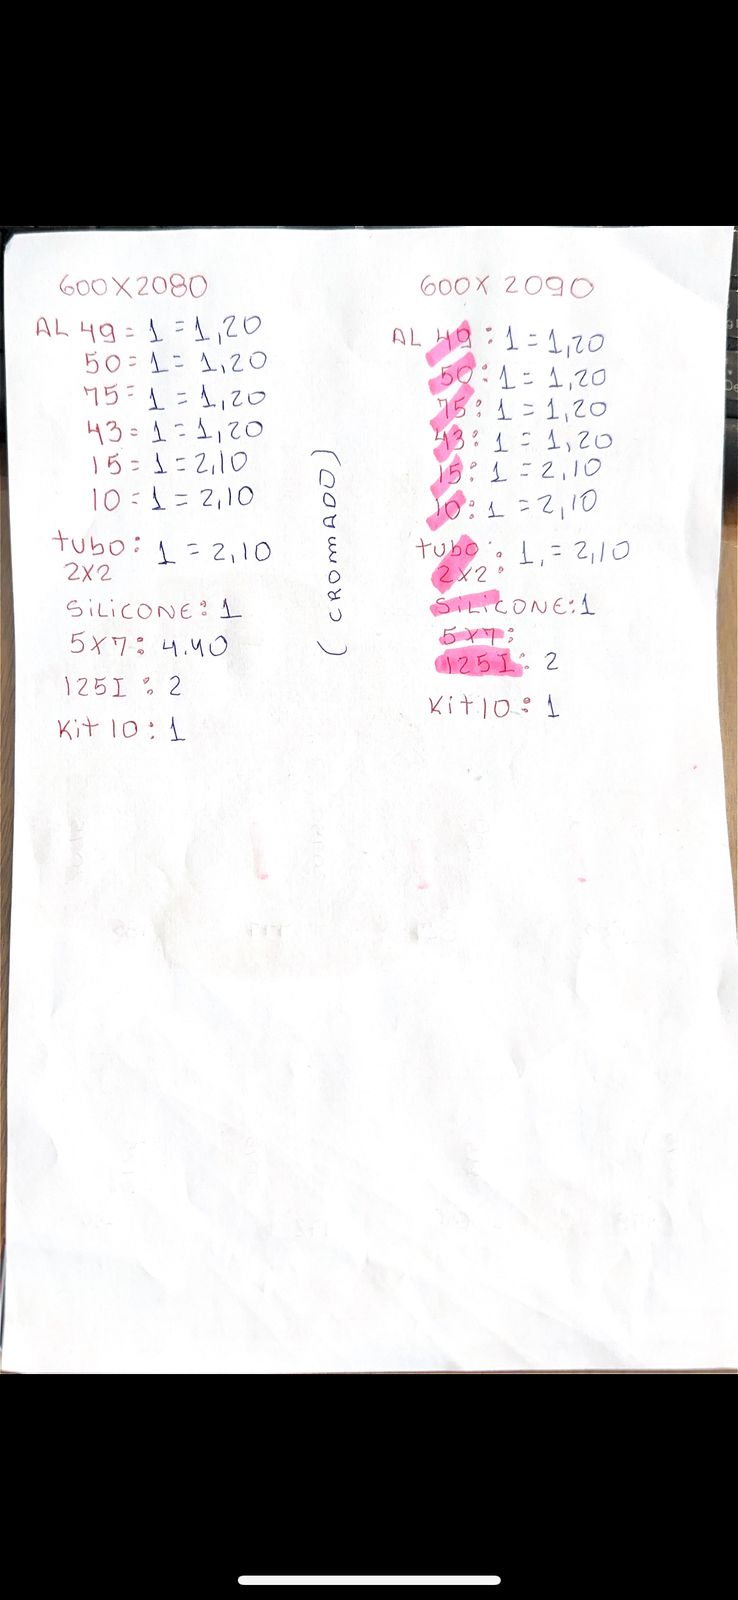 600X2080
AL 49 = 1 = 1,20
50 = 1 = 1,20
75 = 1 = 1,20
43 = 1 = 1,20
15 = 1 = 2,10
10 = 1 = 2,10
tubo: 1 = 2,10
2X2
SiLICONE: 1
5X7: 4.40
125I : 2
Kit 10: 1
(CROMADO)
600X 2090
AL 49 : 1 = 1,20
50: 1 = 1,20
75: 1 = 1,20
43: 1 = 1,20
15: 1 = 2,10
10: 1 = 2,10
tubo: 1, = 2,10
2X2:
SiLiCONE: 1
5X7:
125I: 2
Kit 10: 1